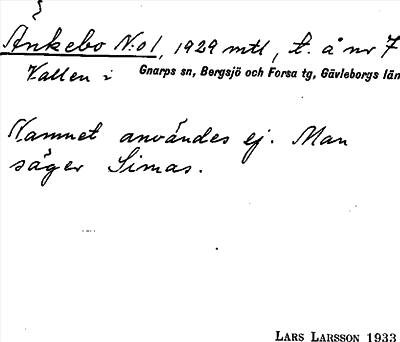 Änkebo No 1, 1929 mtl, t. å nr 7
Vallen i Gnarps sn, Bergsjö och Forsa tg, Gävleborgs län
Namnet användes ej. Man
säger Simas.
LARS LARSSON 1933